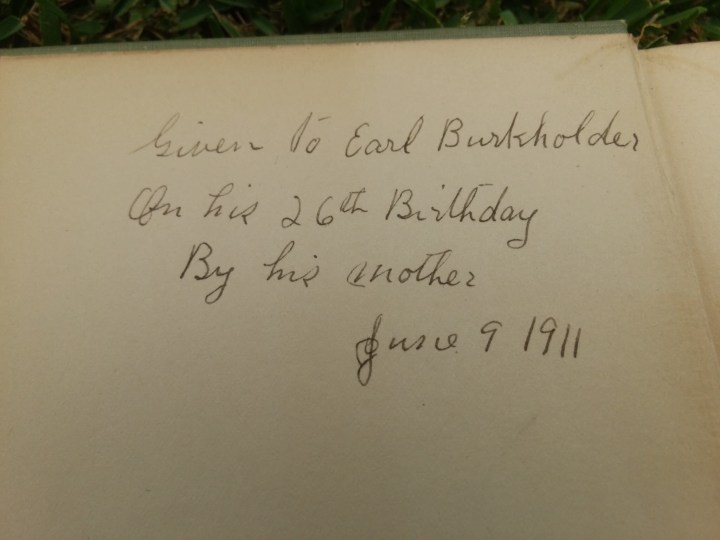 Given to Earl Burkholder
On his 26th Birthday
By his mother
June 9 1911